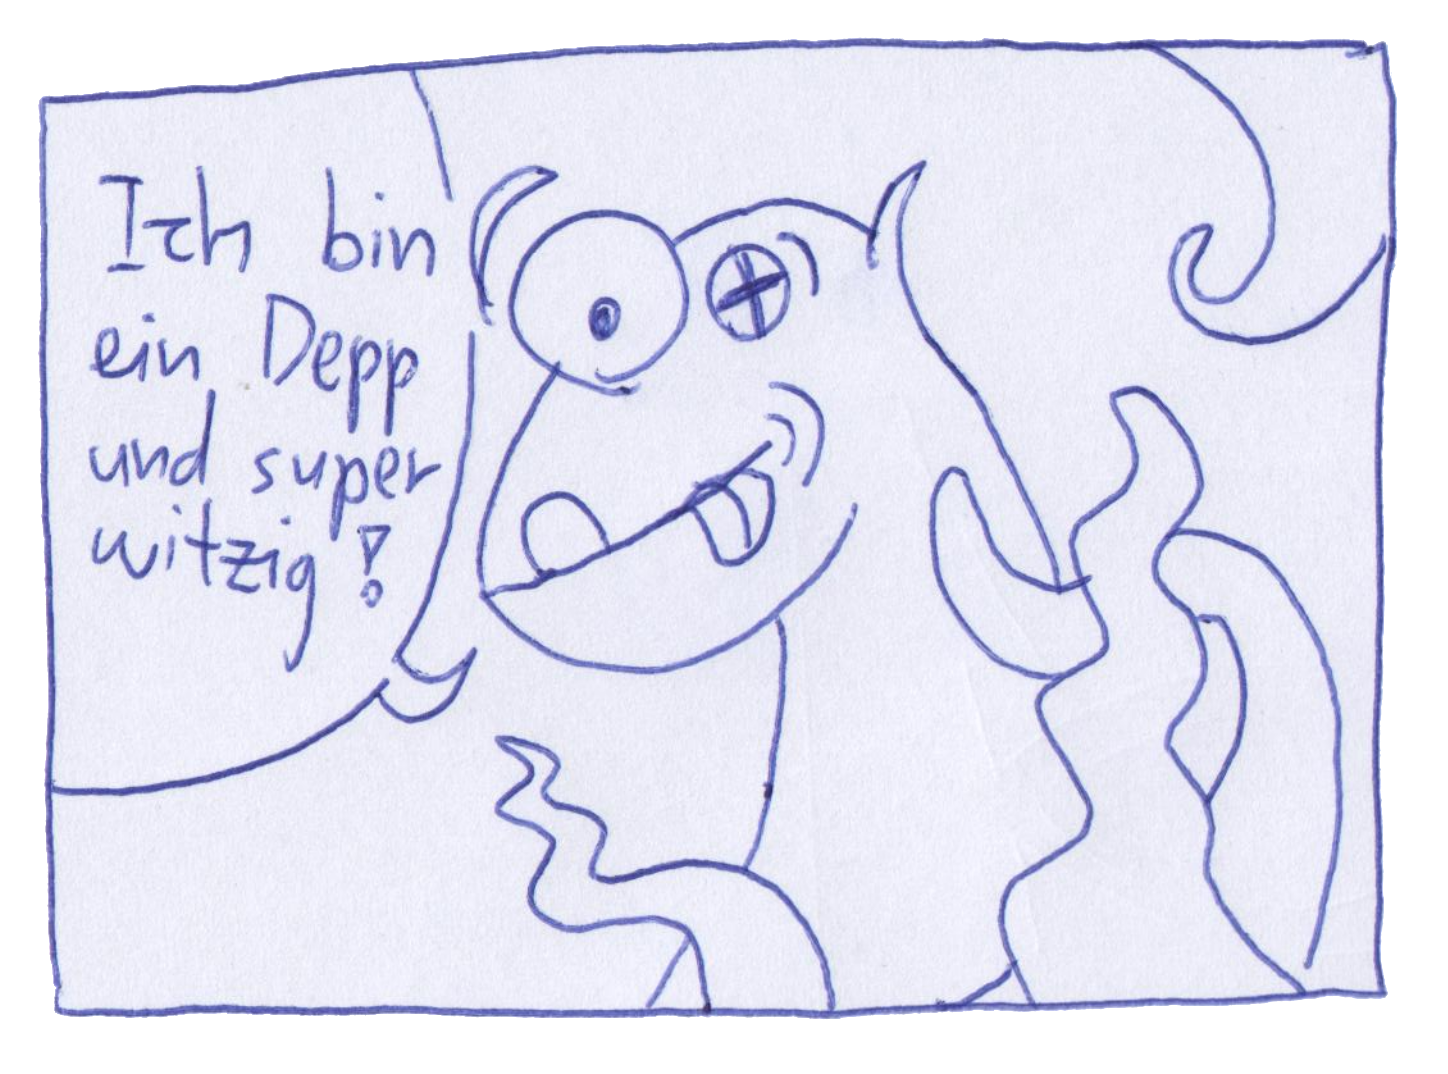 Ich bin
ein Depp
und super
witzig!